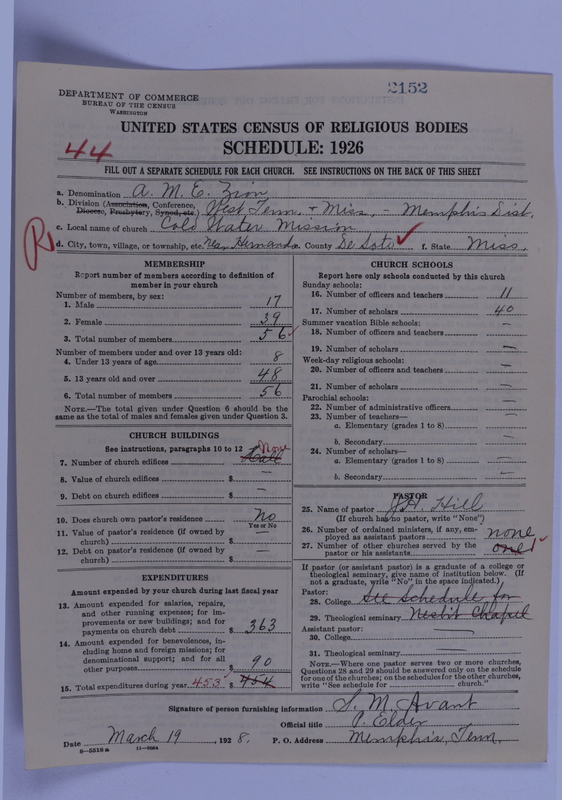 2152
DEPARTMENT OF COMMERCE
BUREAU OF THE CENSUS
WASHINGTON
UNITED STATES CENSUS OF RELIGIOUS BODIES
44
SCHEDULE: 1926
FILL OUT A SEPARATE SCHEDULE FOR EACH CHURCH. SEE INSTRUCTIONS ON THE BACK OF THIS SHEET
a. Denomination A. M. E. Zion
b. Division (Association, Conference, Diocese, Presbytery, Synod, etc.) West Tenn. + Miss. - Memphis Dist.
c. Local name of church Cold Water Mission
R
d. City, town, village, or township, etc. Near Hernando e. County De Soto f. State Miss.
MEMBERSHIP
Report number of members according to definition of member in your church
Number of members, by sex:
1. Male 17
2. Female 39
3. Total number of members 56
Number of members under and over 13 years old:
4. Under 13 years of age 8
5. 13 years old and over 48
6. Total number of members 56
NOTE.—The total given under Question 6 should be the same as the total of males and females given under Question 3.
CHURCH BUILDINGS
See instructions, paragraphs 10 to 12
7. Number of church edifices None
8. Value of church edifices $ —
9. Debt on church edifices $ —
10. Does church own pastor's residence? No
Yes or No
11. Value of pastor's residence (if owned by church) $ —
12. Debt on pastor's residence (if owned by church) $ —
EXPENDITURES
Amount expended by your church during last fiscal year
13. Amount expended for salaries, repairs, and other running expenses; for improvements or new buildings; and for payments on church debt $ 363
14. Amount expended for benevolences, including home and foreign missions; for denominational support; and for all other purposes $ 90
15. Total expenditures during year 453 $ 454
CHURCH SCHOOLS
Report here only schools conducted by this church
Sunday schools:
16. Number of officers and teachers 11
17. Number of scholars 40
Summer vacation Bible schools:
18. Number of officers and teachers —
19. Number of scholars —
Week-day religious schools:
20. Number of officers and teachers —
21. Number of scholars —
Parochial schools:
22. Number of administrative officers —
23. Number of teachers—
a. Elementary (grades 1 to 8) —
b. Secondary —
24. Number of scholars—
a. Elementary (grades 1 to 8) —
b. Secondary —
PASTOR
25. Name of pastor J. H. Hill
(If church has no pastor, write "None")
26. Number of ordained ministers, if any, employed as assistant pastors none
27. Number of other churches served by the pastor or his assistants one 1
If pastor (or assistant pastor) is a graduate of a college or theological seminary, give name of institution below. (If not a graduate, write "No" in the space indicated.)
Pastor:
28. College See Schedule for
29. Theological seminary Nesbit Chapel
Assistant pastor:
30. College
31. Theological seminary
NOTE.—Where one pastor serves two or more churches, Questions 28 and 29 should be answered only on the schedule for one of the churches; on the schedules for the other churches, write "See schedule for ______ church."
Signature of person furnishing information S. M. Avant
Official title P. Elder
Date March 19, 1928. P. O. Address Memphis, Tenn.
8—5518a 11—9064